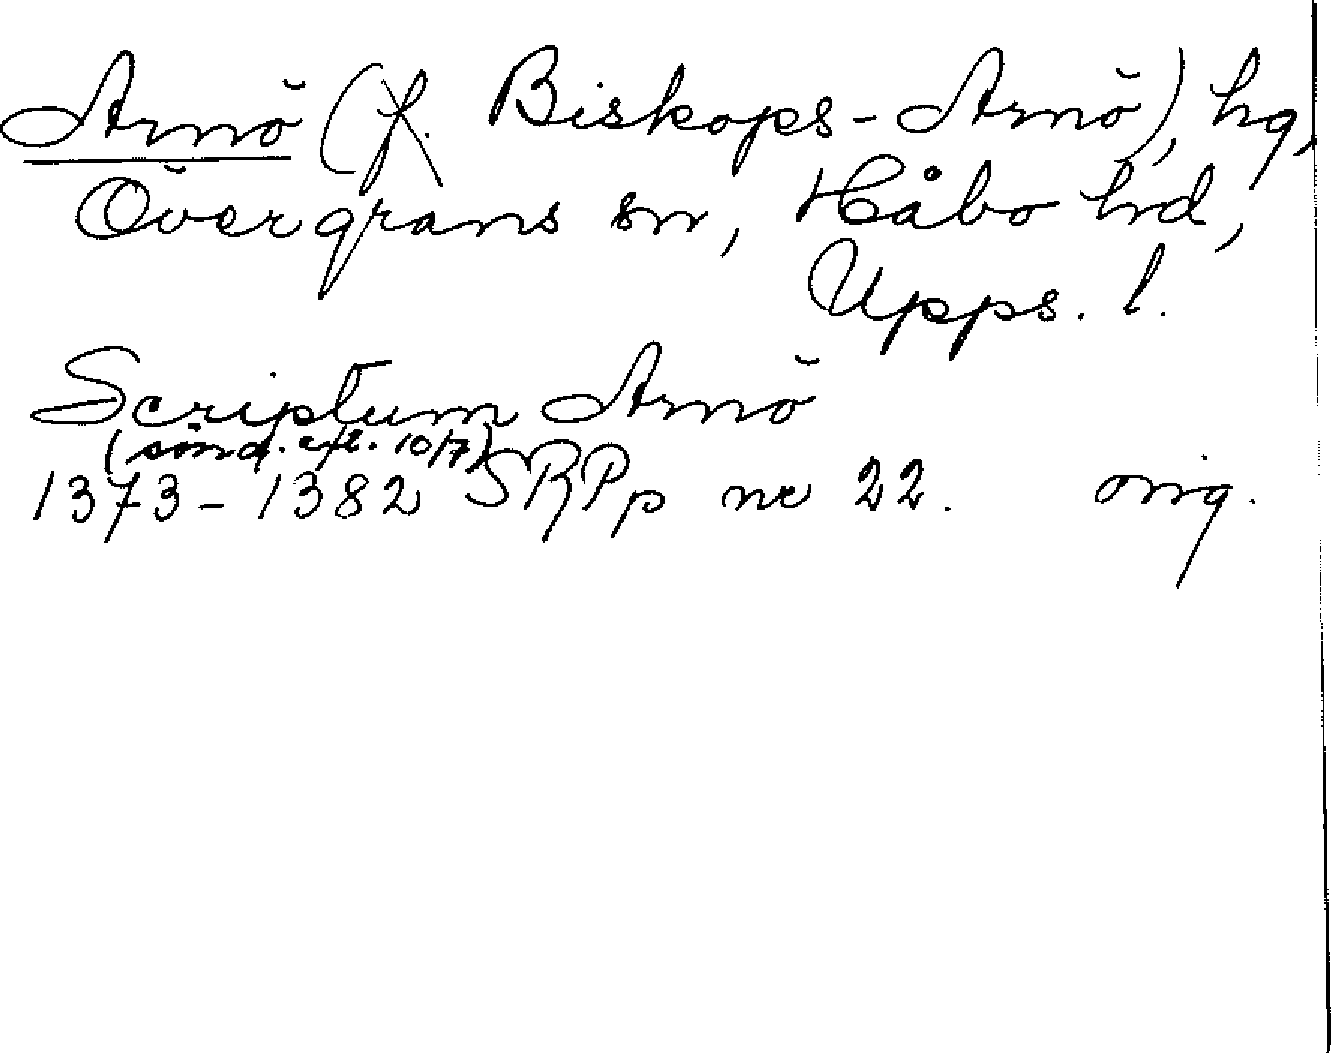 Arnö (f. Biskops-Arnö), hg,
Övergrans sn, Håbo hd,
Upps. l.
Scriptum Arnö
(sönd. eft. 10/7)
1373-1382 SRPp nr 22. orig.